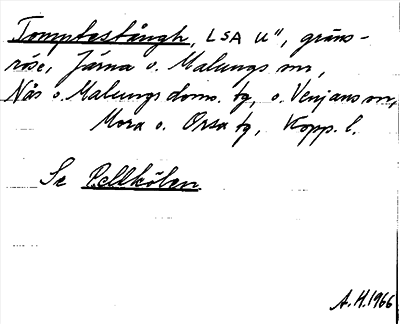 Tomptastångh, LSA U", gräns-
röse, Järna o. Malungs snr,
Nås o. Malungs doms. tg, o. Venjans sn,
Mora o. Orsa tg, Kopp. l.
Se Pellkölen
A.H. 1966